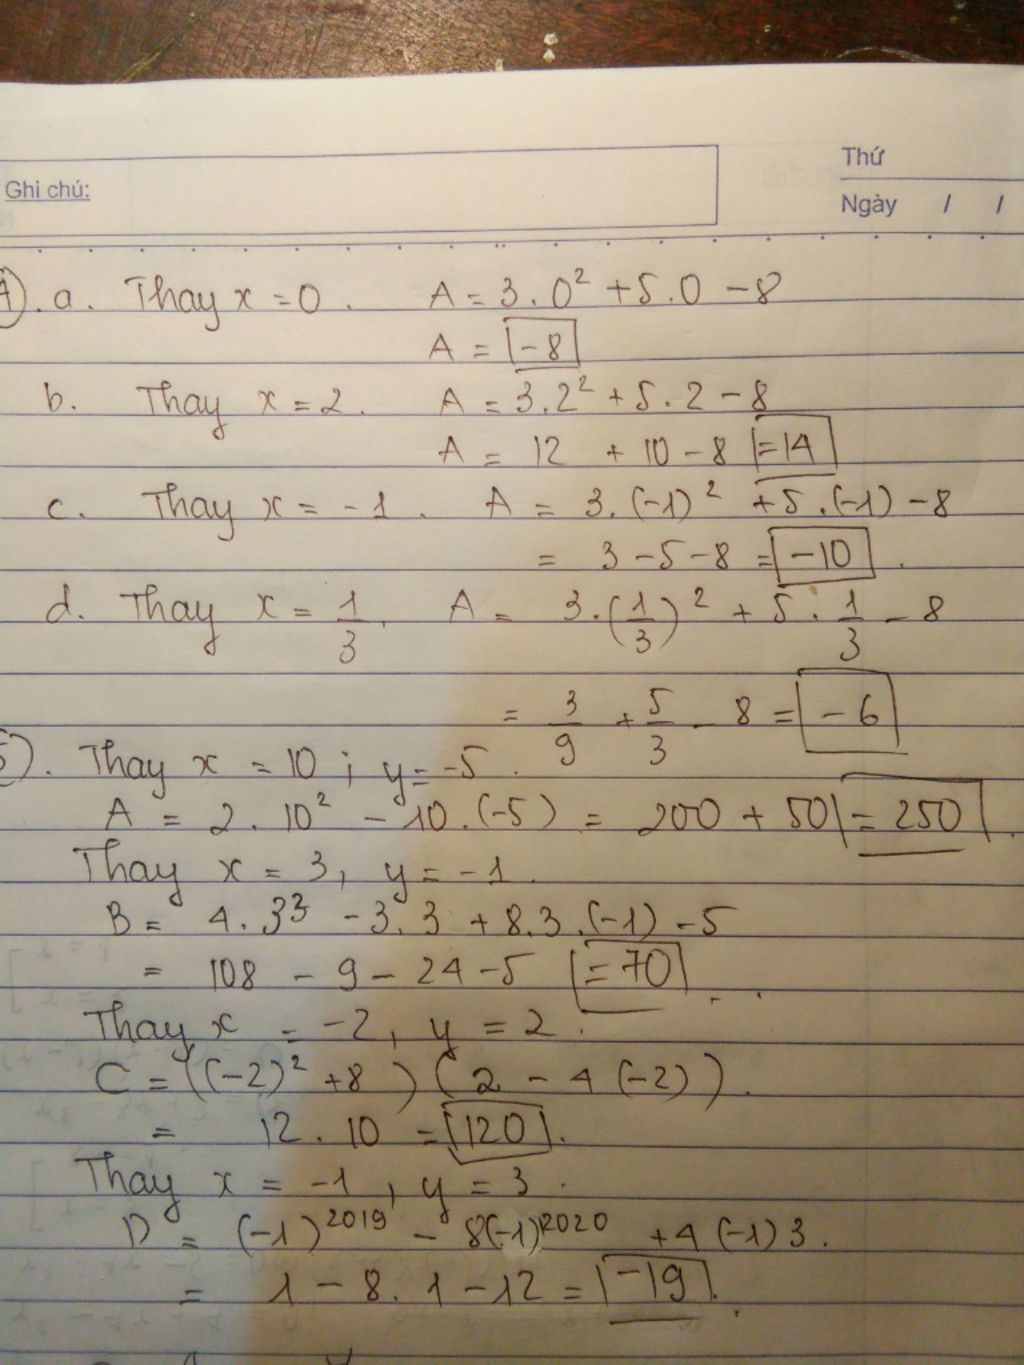 Thứ
Ghi chú:
Ngày / /
4). a. Thay x = 0. A = 3.0² + 5.0 - 8
A = -8
b. Thay x = 2. A = 3.2² + 5.2 - 8
A = 12 + 10 - 8 = 14
c. Thay x = -1. A = 3.(-1)² + 5.(-1) - 8
= 3 - 5 - 8 = -10.
d. Thay x = 1/3, A = 3.(1/3)² + 5.1/3 - 8
= 3/9 + 5/3 - 8 = -6
5). Thay x = 10; y = -5.
A = 2.10² - 10.(-5) = 200 + 50 = 250.
Thay x = 3, y = -1.
B = 4.3³ - 3.3 + 8.3.(-1) - 5
= 108 - 9 - 24 - 5 = 70.
Thay x = -2, y = 2.
C = ((-2)² + 8)(2 - 4(-2)).
= 12.10 = 120.
Thay x = -1, y = 3.
D = (-1)²⁰¹⁹ - 8(-1)²⁰²⁰ + 4(-1)3.
= 1 - 8.1 - 12 = -19.